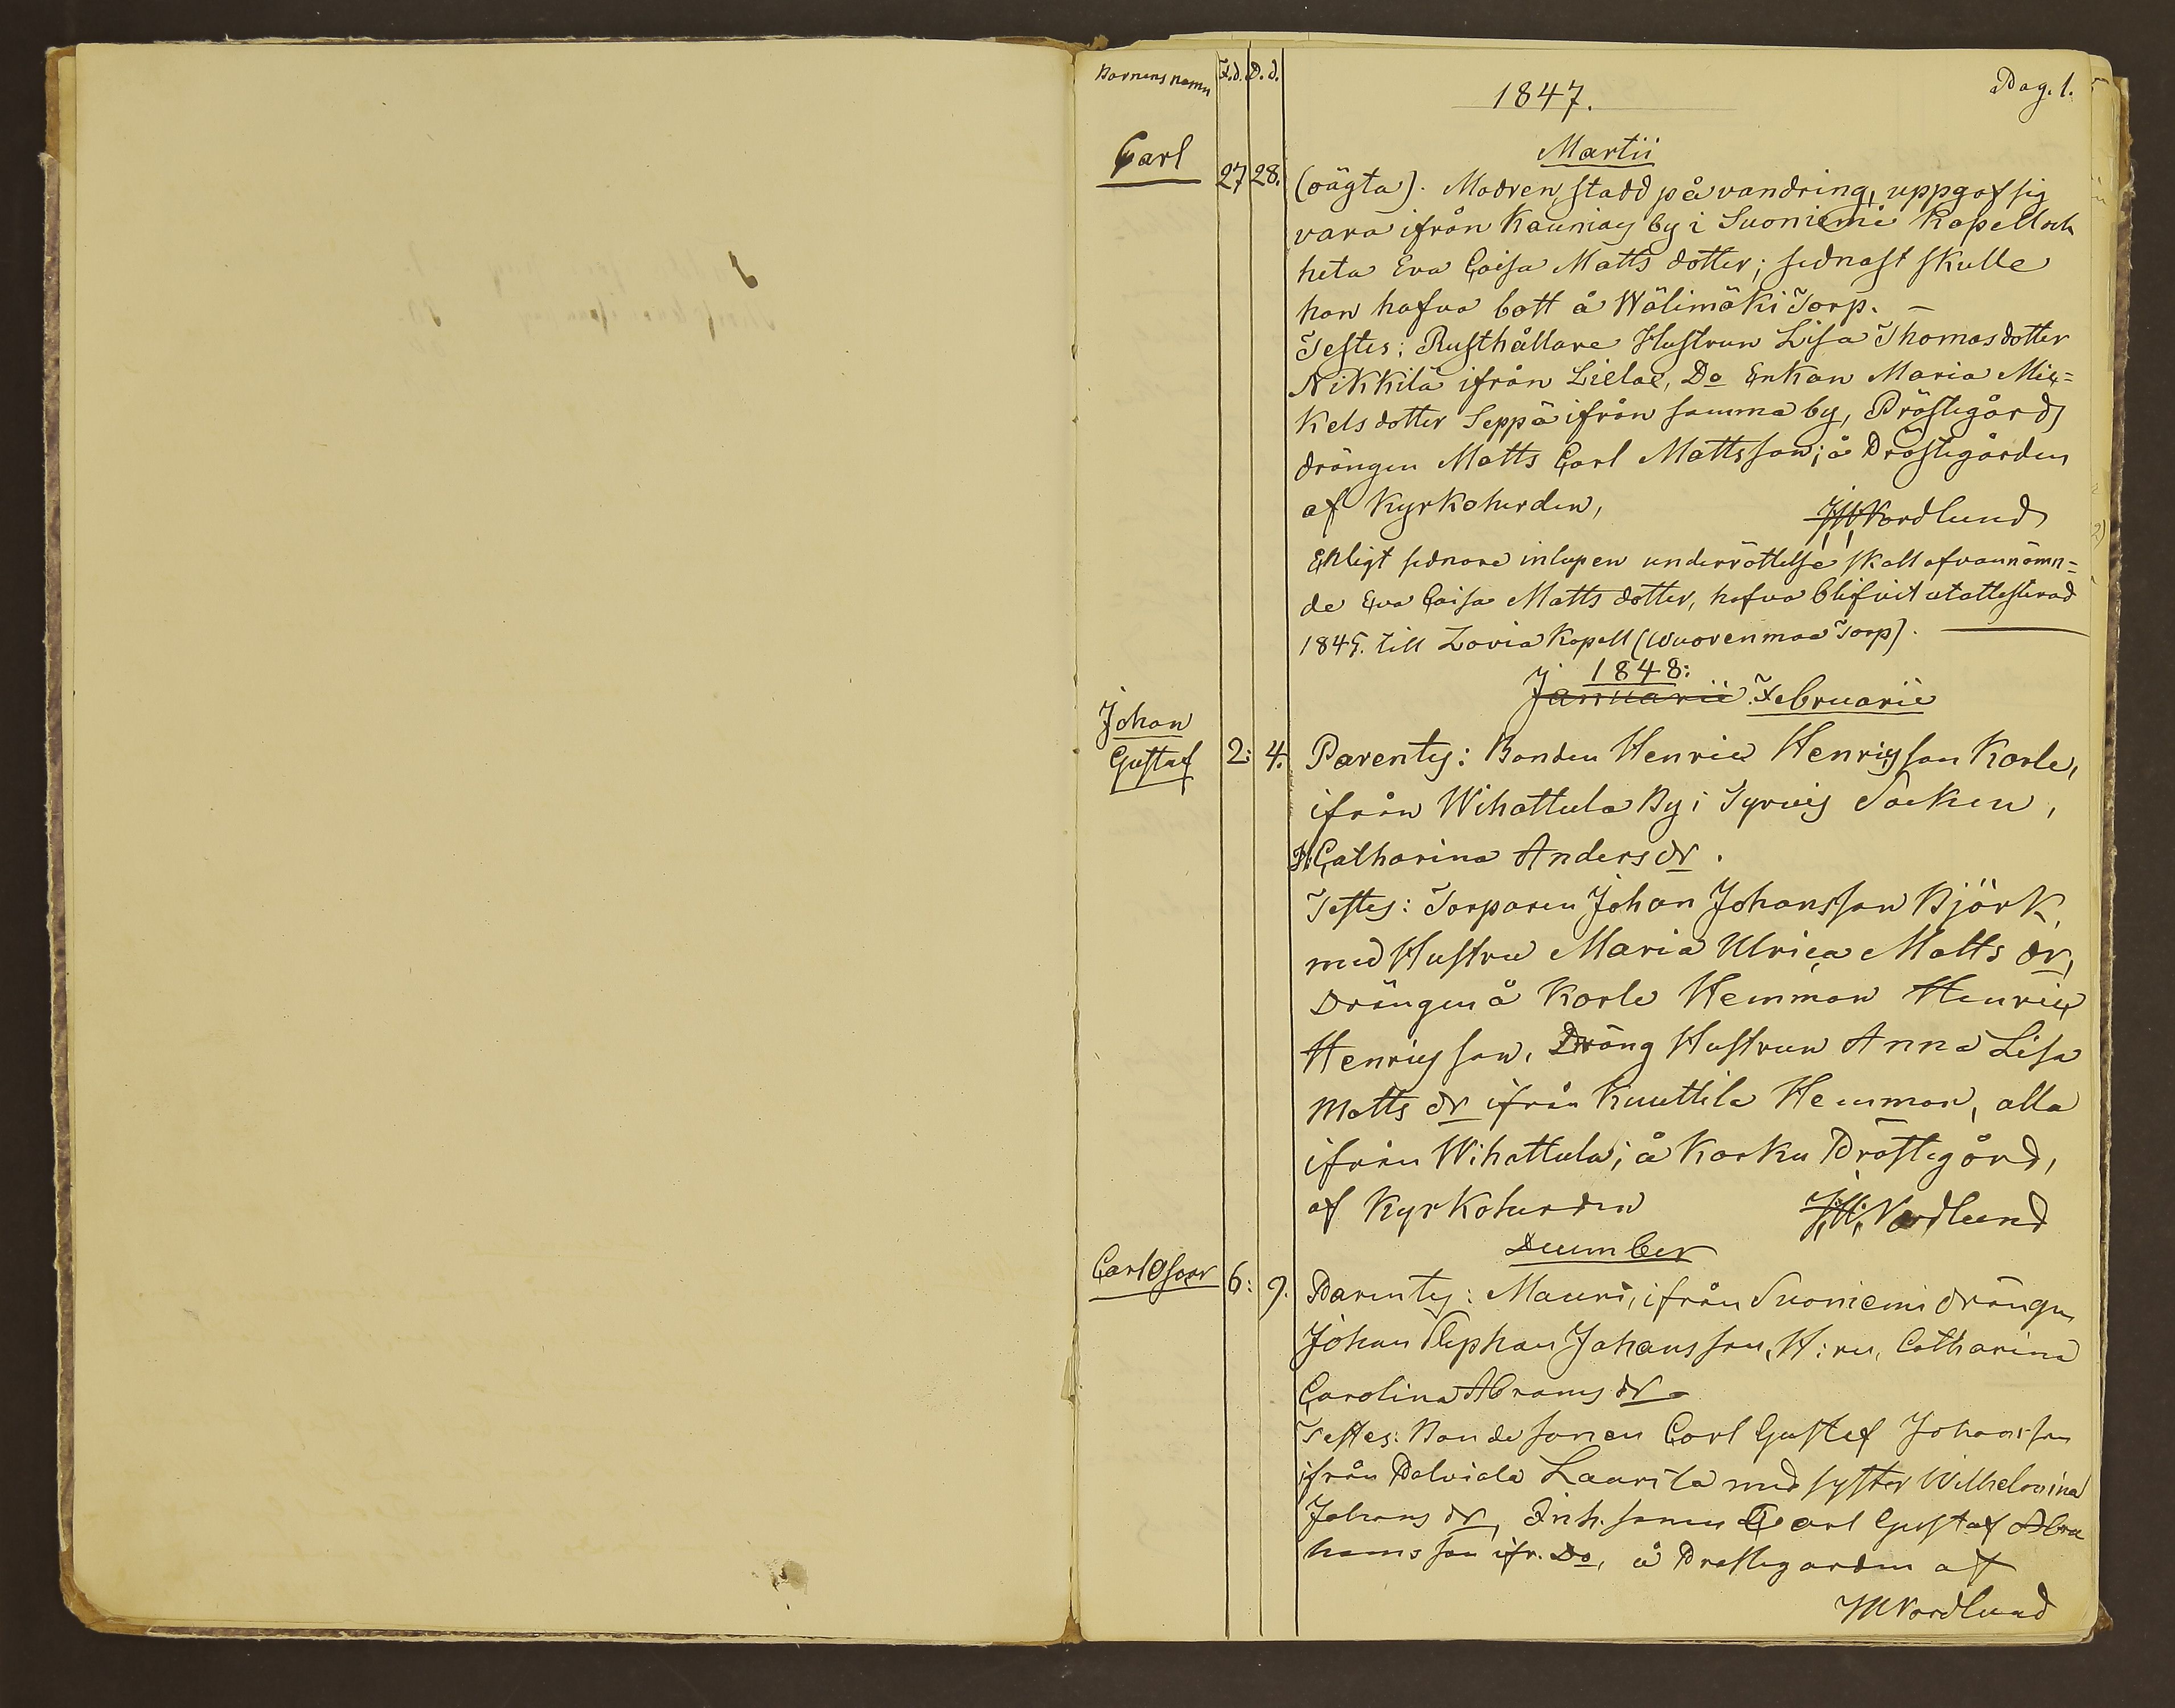 Barnens namn F.d. D.d.
1847.
Pag. 1.
Martii
Carl 27 28. (oägta). Modren, stadd på vandring, uppgaf sig
vara ifrån Kauniais by i Suoniemi Kapell och
heta Eva Caisa Matts dotter; sednast skulle
hon hafva bott å Wälimäki Torp. —
Testes: Rusthållare Hustrun Lisa Thomasdotter
Nikkilä ifrån Lielax, Do Enkan Maria Mic=
kelsdotter Seppä ifrån samma by, Prästegårds
drängen Matts Carl Mattsson; å Prästegården
af Kyrkoherden,
JW Nordlund
Enligt sednare inlupen underrättelse skall ofvannämn=
de Eva Caisa Matts dotter, hafva blifvit utattesterad
1845. till Lavia Kapell (Wuorenmaa Torp).
1848:
Januarii Februarii
Johan
Gustaf 2: 4. Parentes: Bonden Henric Henricsson Karle,
ifrån Wihattula By i Tyrvis Socken,
H. Catharina Anders dr.
Testes: Torparen Johan Johansson Björk,
med Hustru Maria Ulrica Matts dr,
Drängen å Karle Hemman Henric
Henricsson, Dräng Hustrun Anna Lisa
Matts dr ifrån Kuuttila Hemman, alla
ifrån Wihattula; å Karku Prästegård,
af Kyrkoherden
J.W. Nordlund
December
Carl Oscar 6: 9. Parentes: Mauri, ifrån Suoniemi drängen
Johan Stephan Johansson, H:ru, Catharina
Carolina Abrams dr
Testes: Bondesonen Carl Gustaf Johansson
ifrån Palviala Laurila med syster Wilhelmina
Johans dr, Inh. sonen Carl Gustaf Abra
hamsson ifr. Do, å Prestegarden af
JW Nordlund